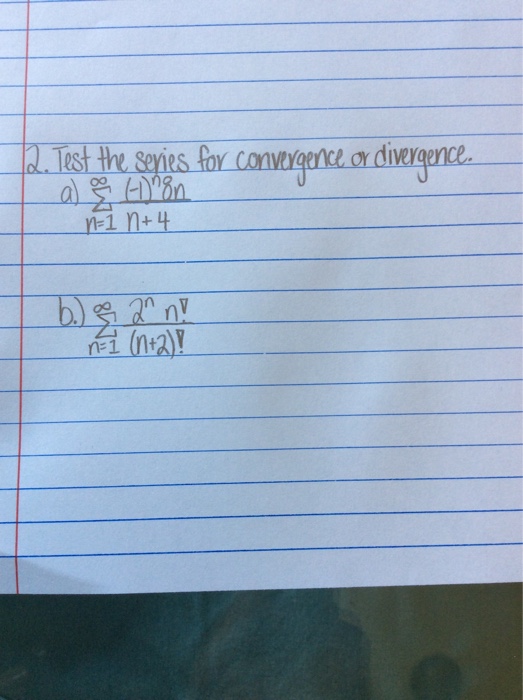 2. Test the series for convergence or divergence.
a) ∞ Σ n=1 (-1)ⁿ8n / n+4
b.) ∞ Σ n=1 2ⁿ n! / (n+2)!